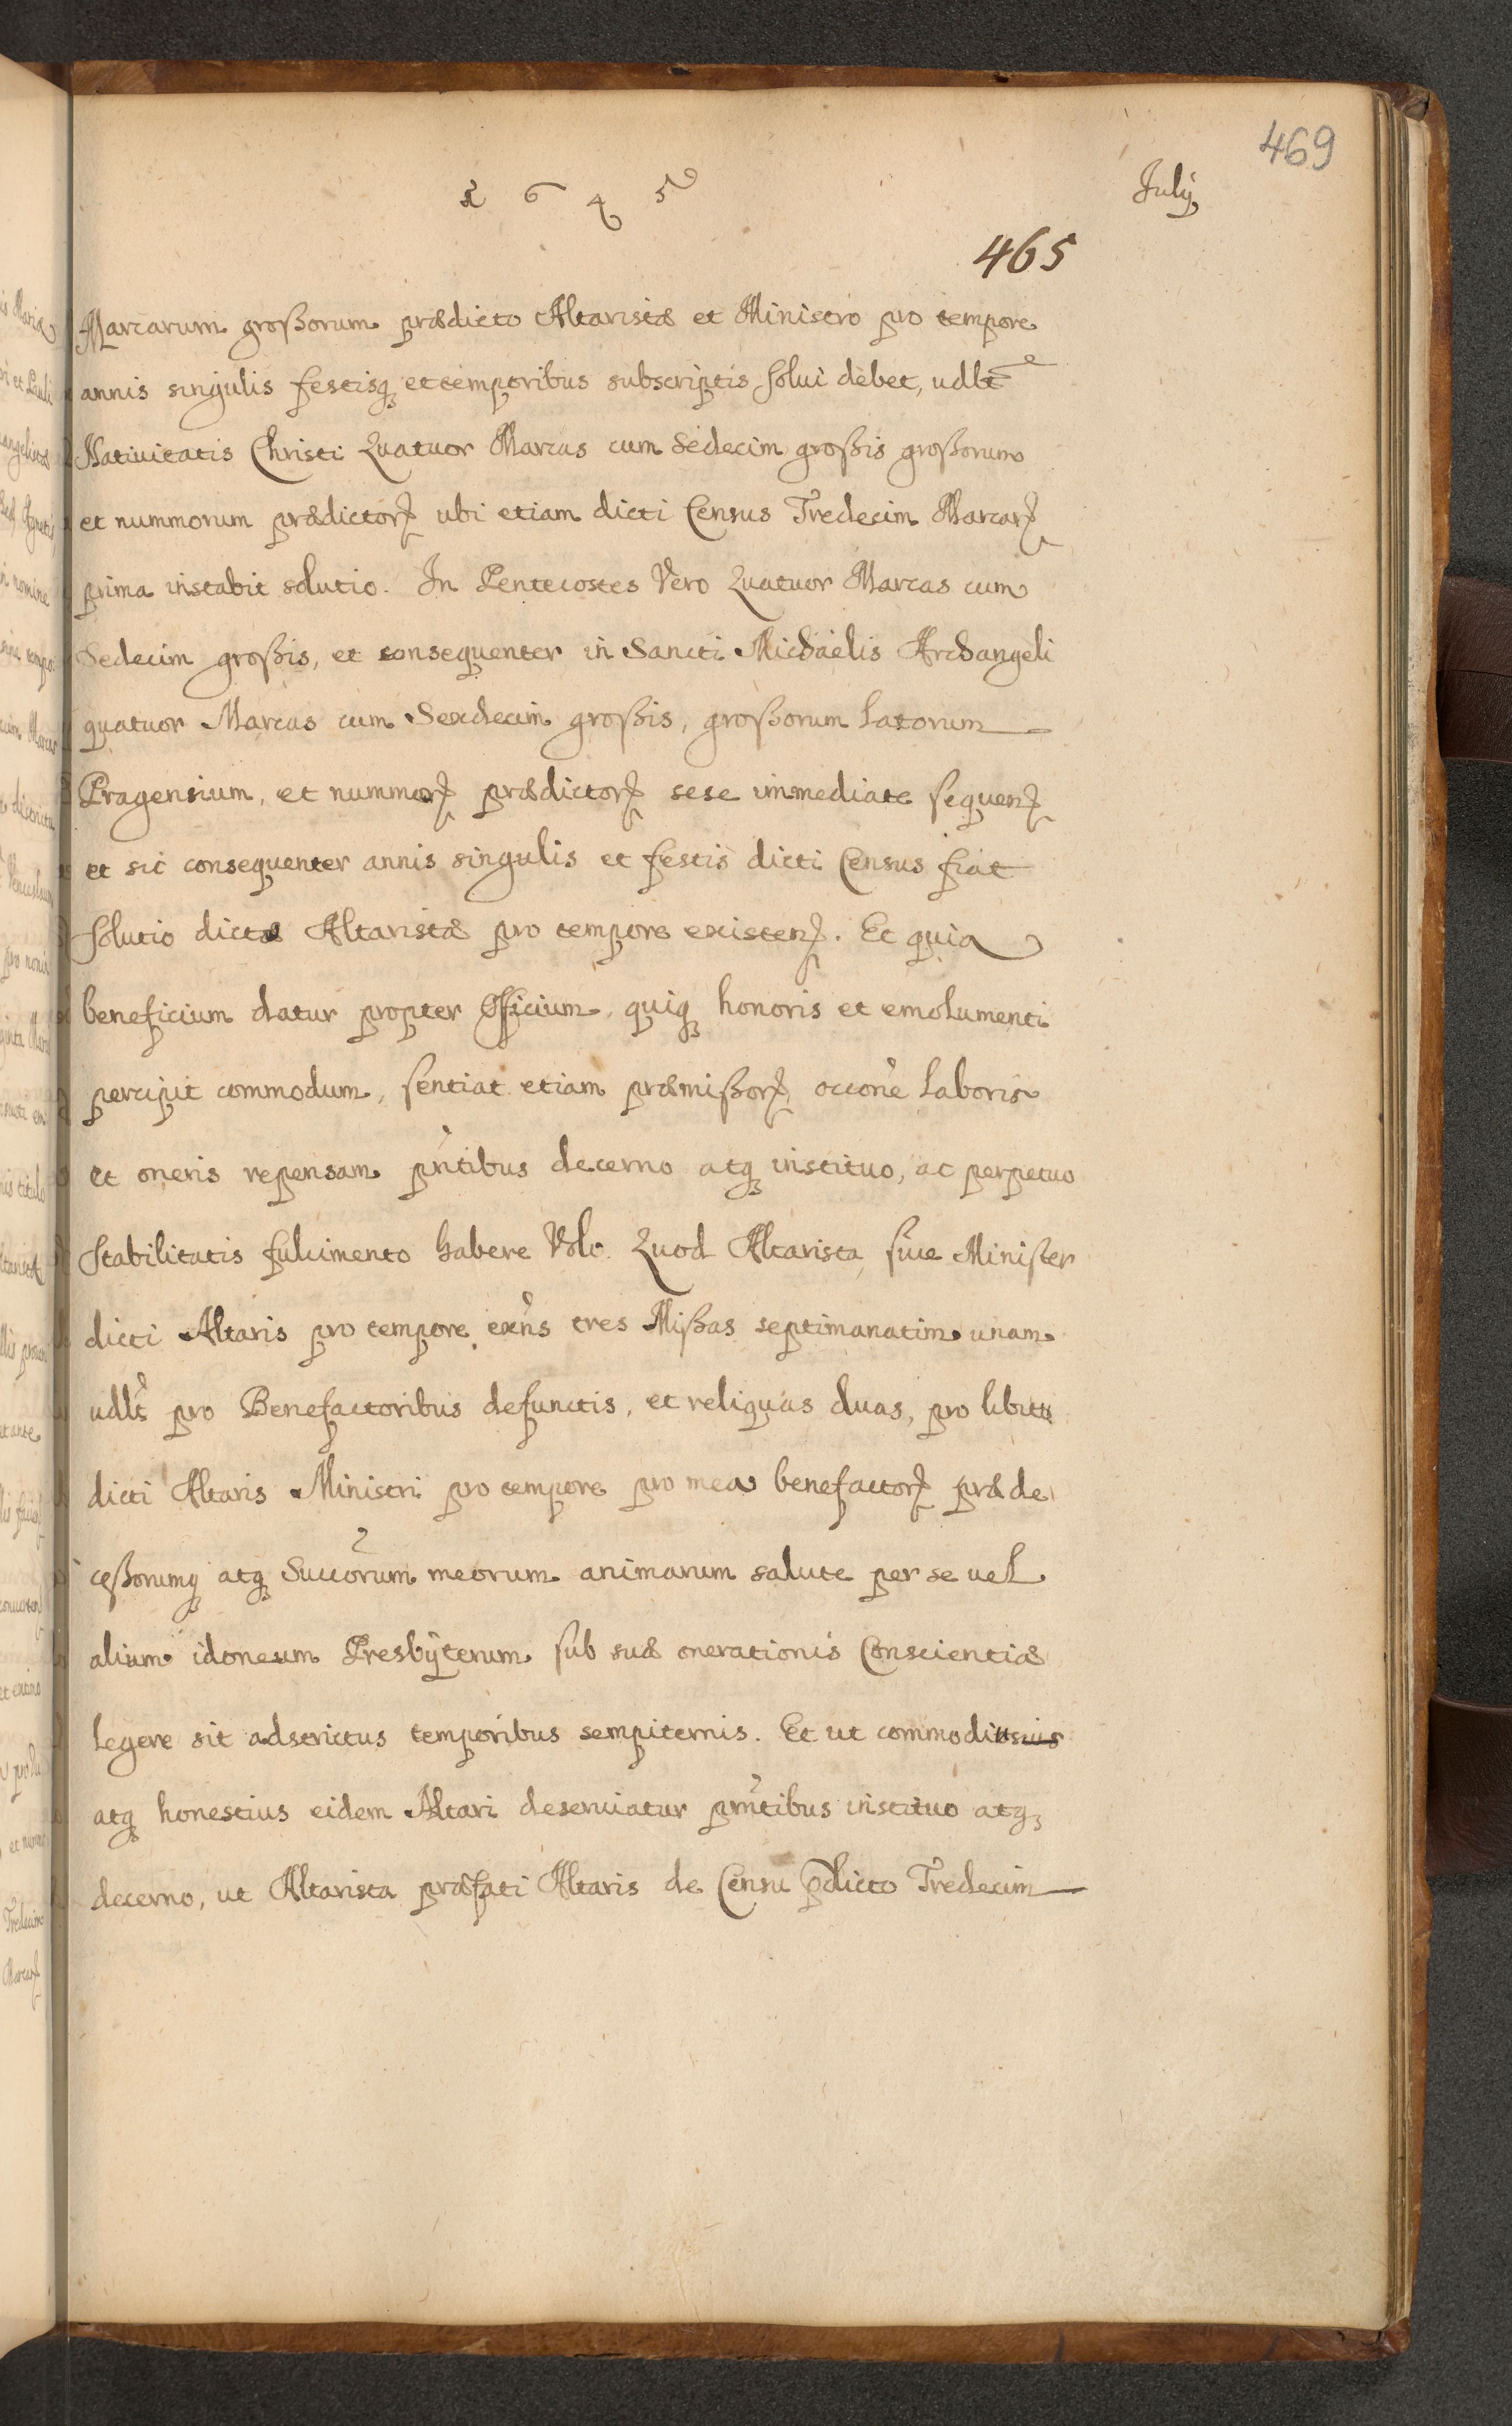 469
1645
July
465
Marcarum großorum prædicto Altaristæ et Ministro pro tempore
annis singulis festisq et temporibus subscriptis solui debet, udlt
Natiuitatis Christi Quatuor Marcas cum Sedecim großis großorum
et nummorum prædictorꝝ ubi etiam dicti Census Tredecim Marcarꝝ
prima instabit solutio. In Pentecostes Vero Quatuor Marcas cum
Sedecim großis, et consequenter in Sancti Michaëlis Archangeli
quatuor Marcas cum Sexdecim großis, großorum Latorum
Pragensium, et nummorꝝ prædictorꝝ sese immediate sequenꝝ
et sic consequenter annis singulis et festis dicti Census fiat
solutio dictæ Altaristæ pro tempore existenꝝ. Et quia
beneficium datur propter Officium, quiq honoris et emolumenti
percipit commodum, sentiat etiam præmißorꝝ occone Laboris
et oneris repensam pntibus decerno atq instituo, ac perpetuo
stabilitatis fulcimento habere Volo. Quod Altarista siue Minister
dicti Altaris pro tempore exns tres Mißas septimanatim unam
udlt pro Benefactoribus defunctis, et reliquas duas, pro libitu
dicti Altaris Ministri pro tempore pro mea benefactorꝝ præde
ceßorumq atq Succorum meorum animarum salute per se uel
alium idoneum Presbÿterum sub suæ onerationis Conscientiæ
legere sit adstrictus temporibus sempiternis. Et ut commodius
atq honestius eidem Altari deseruiatur prntibus instituo atq
decerno, ut Altarista præfati Altaris de Censu pdicto Tredecim